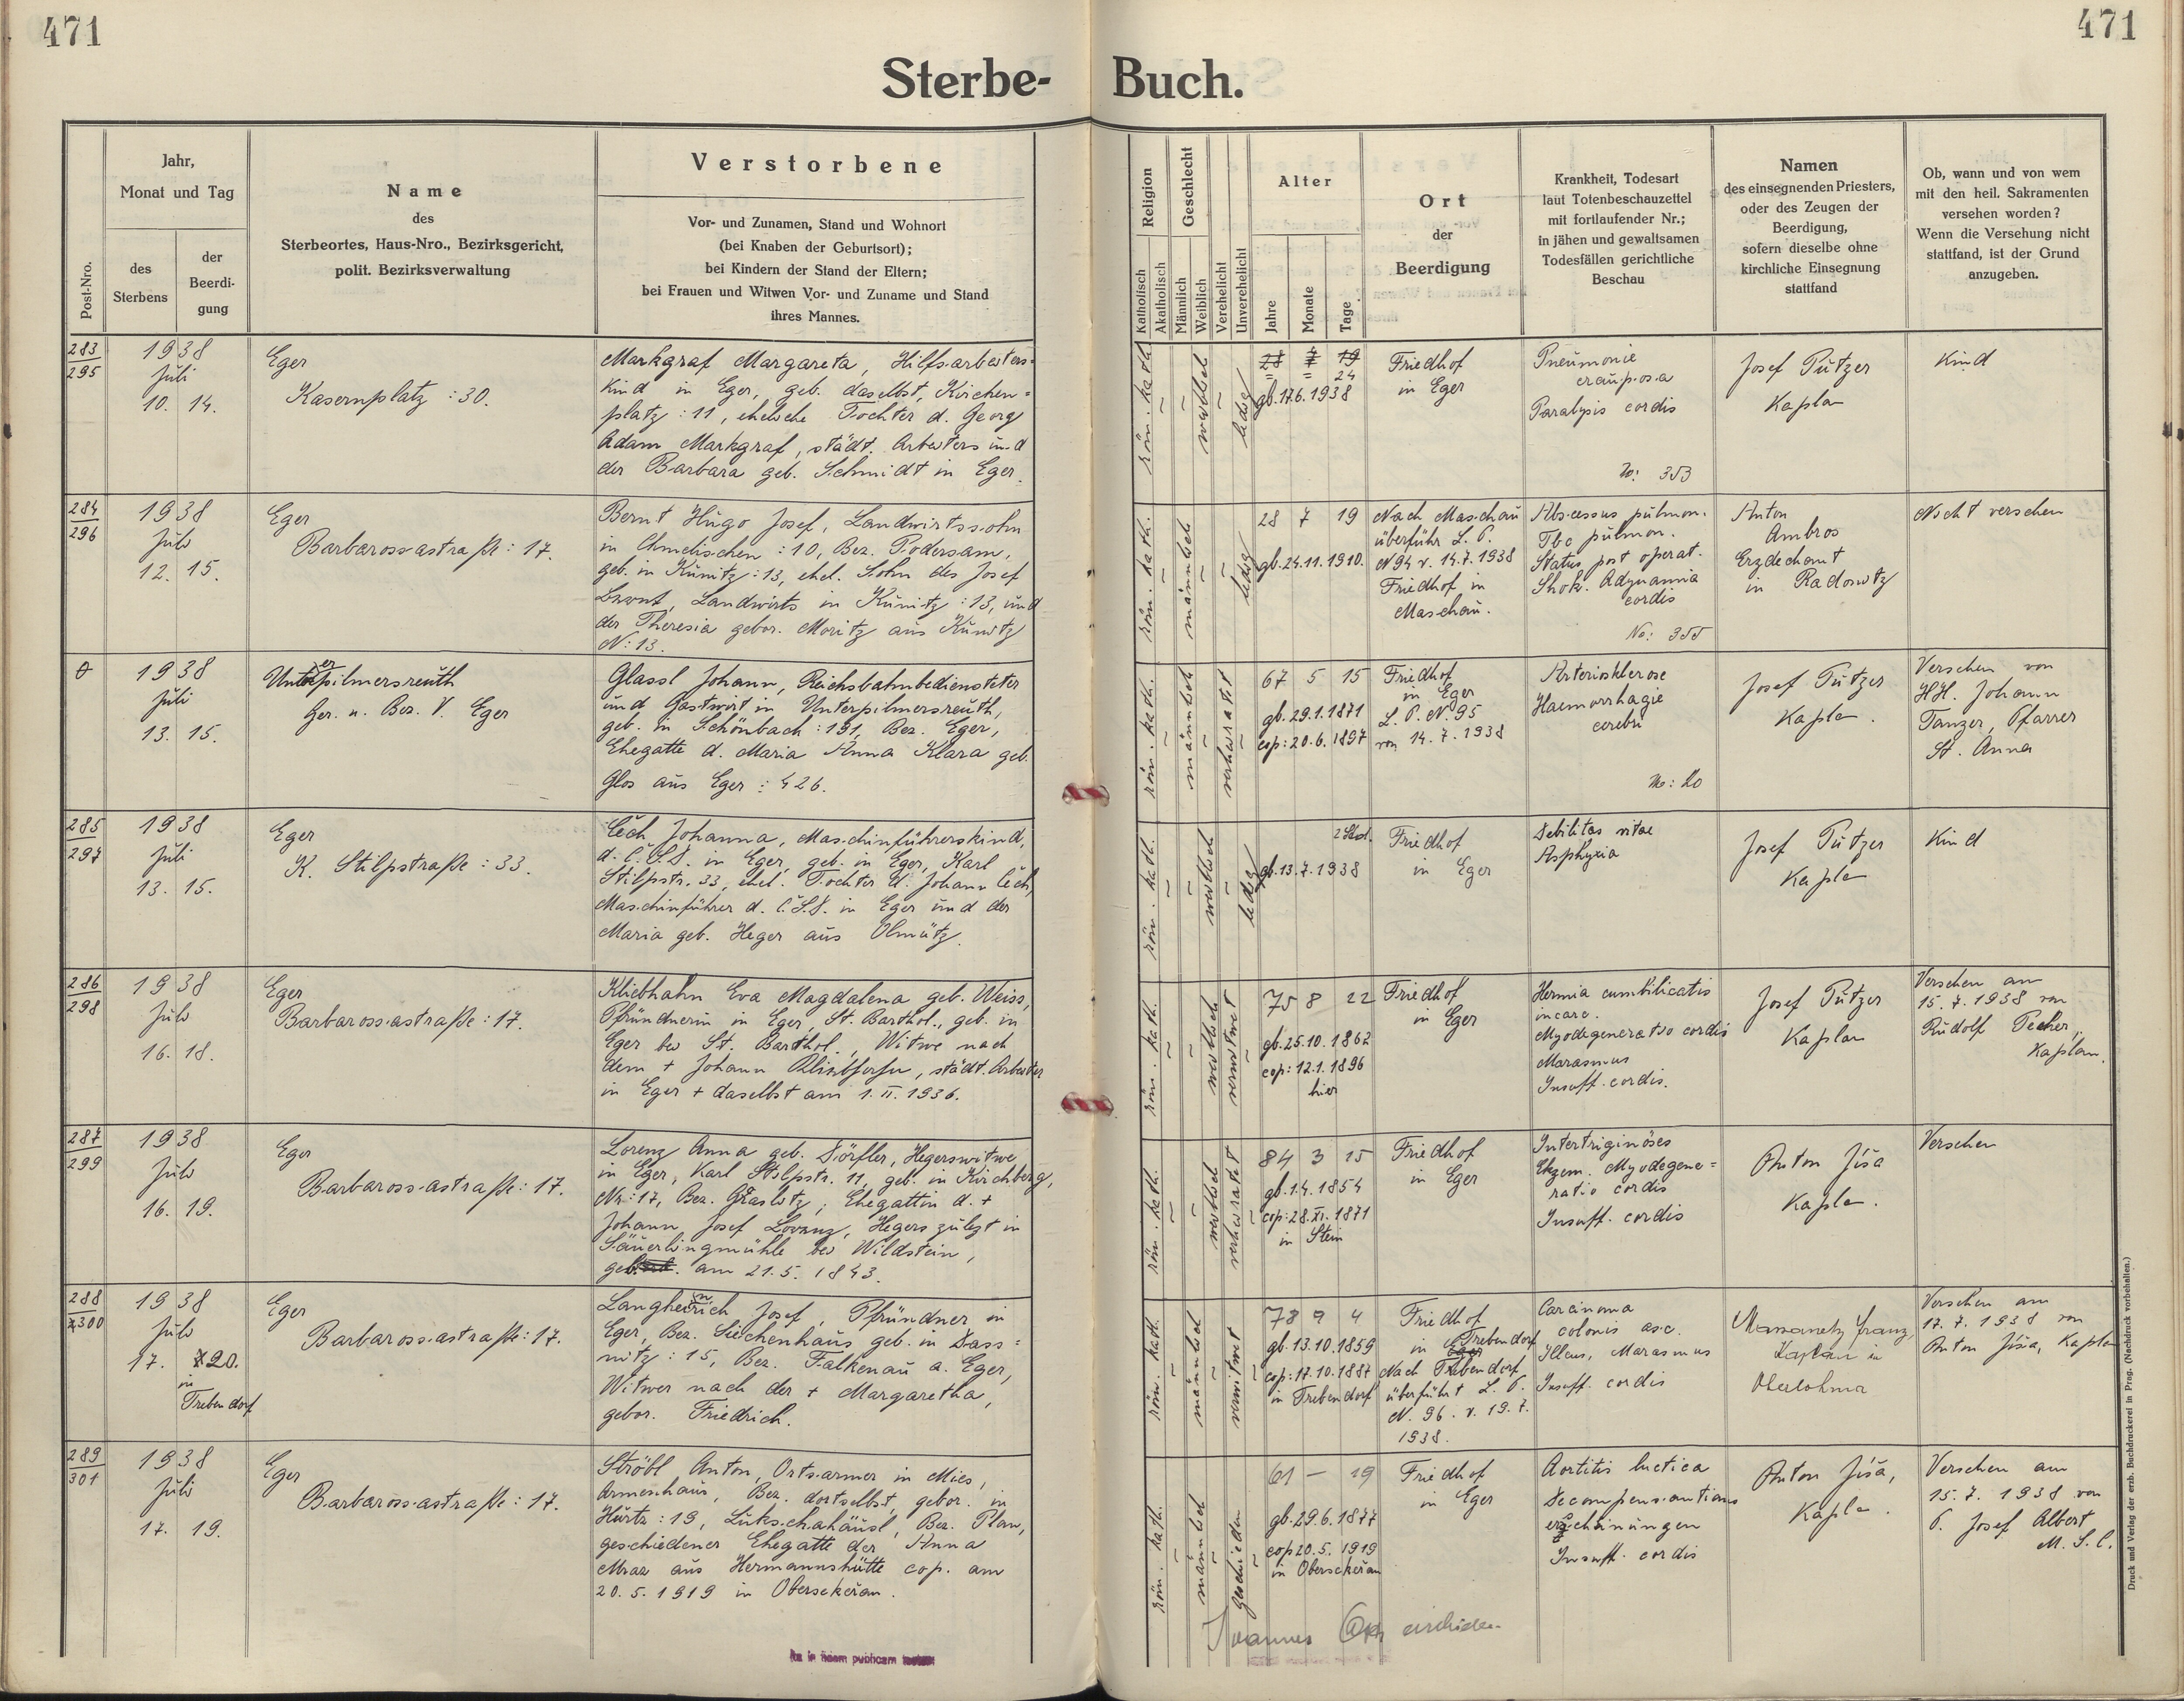 471
471
Sterbe- Buch.
Post-Nro.
Jahr,
Monat und Tag
des
Sterbens
der
Beerdi-
gung
Name
des
Sterbeortes, Haus-Nro., Bezirksgericht,
polit. Bezirksverwaltung
Verstorbene
Vor- und Zunamen, Stand und Wohnort
(bei Knaben der Geburtsort);
bei Kindern der Stand der Eltern;
bei Frauen und Witwen Vor- und Zuname und Stand
ihres Mannes.
Religion
Katholisch
Akatholisch
Geschlecht
Männlich
Weiblich
Verehelicht
Unverehelicht
Alter
Jahre
Monate
Tage
Ort
der
Beerdigung
Krankheit, Todesart
laut Totenbeschauzettel
mit fortlaufender Nr.;
in jähen und gewaltsamen
Todesfällen gerichtliche
Beschau
Namen
des einsegnenden Priesters,
oder des Zeugen der
Beerdigung,
sofern dieselbe ohne
kirchliche Einsegnung
stattfand
Ob, wann und von wem
mit den heil. Sakramenten
versehen worden?
Wenn die Versehung nicht
stattfand, ist der Grund
anzugeben.
283
295
1938
Juli
10. 14.
Eger
Kasernplatz : 30.
Markgraf Margareta, Hilfsarbeiters-
kind in Eger, geb. daselbst, Kirchen=
platz : 11, eheliche Tochter d. Georg
Adam Markgraf, städt. Arbeiters und
der Barbara geb. Schmidt in Eger.
röm. kath.
weiblich
ledig
28 7 19
= = 24
gb. 17.6.1938
Friedhof
in Eger
Pneumonie
crauposa
Paralysis cordis
No: 353
Josef Pützer
Kaplan
Kind
284
296
1938
Juli
12. 15.
Eger
Barbarossastraße : 17.
Bernt Hugo Josef, Landwirtssohn
in Chmelischen : 10, Bez. Podersam,
geb. in Künitz : 13, ehel. Sohn des Josef
Bernt, Landwirts in Künitz : 13, und
der Theresia gebor. Moritz aus Künitz
N: 13.
röm. kath.
männlich
ledig
28 7 19
gb. 24.11.1910.
Nach Maschau
überführ L. P.
N 94 v. 14.7.1938
Friedhof in
Maschau.
Abscessus pulmon.
Tbc pulmon.
Status post operat.
Shok. Adynamia
cordis
No: 355
Anton
Ambros
Erzdechant
in Radonitz
Nicht versehen
0
1938
Juli
13. 15.
Unterpilmersreuth
Ger. u. Bez. V. Eger
Glassl Johann, Reichsbahnbediensteter
und Gastwirt in Unterpilmersreuth,
geb. in Schönbach : 191, Bez. Eger,
Ehegatte d. Maria Anna Klara geb.
Glos aus Eger : 426.
röm. kath.
männlich
verheiratet
67 5 15
gb. 29.1.1871
cop: 20.6.1897
Friedhof
in Eger
L. P. N. 95
von 14.7.1938
Arteriosklerose
Haemorrhagie
cerebri
No: 20
Josef Pützer
Kaplan.
Versehen von
HH. Johann
Tanzer, Pfarrer
St. Anna
285
297
1938
Juli
13. 15.
Eger
K. Stilpstraße : 33.
Čech Johanna, Maschinführerskind,
d. Č.S.D. in Eger, geb. in Eger, Karl
Stilpstr. 33, ehel. Tochter d. Johann Čech,
Maschinführer d. Č.S.D. in Eger und der
Maria geb. Heger aus Olmütz.
röm. kath.
weiblich
ledig
2 Std.
gb. 13.7.1938
Friedhof
in Eger
Debilitas vitae
Asphyxia
Josef Pützer
Kaplan
Kind
286
298
1938
Juli
16. 18.
Eger
Barbarossastraße : 17.
Kliebhahn Eva Magdalena geb. Weiss,
Pfründnerin in Eger, St. Barthol., geb. in
Eger bei St. Barthol., Witwe nach
dem + Johann Kliebhahn, städt. Arbeiter
in Eger + daselbst am 1. II. 1936.
röm. kath.
weiblich
verwitwet
75 8 22
gb. 25.10.1862
cop: 12.1.1896
hier
Friedhof
in Eger
Hernia cumbilicatis
incarc.
Myodegeneratio cordis
Marasmus
Insuff. cordis.
Josef Pützer
Kaplan
Versehen am
15.7.1938 von
Rudolf Pecher,
Kaplan.
287
299
1938
Juli
16. 19.
Eger
Barbarossastraße : 17.
Lorenz Anna geb. Dörfler, Hegerswitwe
in Eger, Karl Stilpstr. 11, geb. in Kirchberg,
Nr.: 17, Bez. Graslitz ; Ehegattin d. +
Johann Josef Lorenz, Hegers zuletzt in
Säuerlingmühle bei Wildstein,
geb. am 21.5.1843.
röm. kath.
weiblich
verheiratet
84 3 15
gb. 1.4.1854
cop: 28.XI.1871
in Stein
Friedhof
in Eger
Intertriginöses
Ekzem. Myodegene=
ratio cordis
Insuff. cordis
Anton Jíša
Kaplan.
Versehen
288
300
1938
Juli
17. 20.
in
Trebendorf
Eger
Barbarossastraße : 17.
Langheinrich Josef, Pfründner in
Eger, Bez. Siechenhaus geb. in Dass=
nitz : 15, Bez. Falkenau a. Eger,
Witwer nach der + Margaretha,
gebor. Friedrich.
röm. kath.
männlich
verwitwet
78 9 4
gb. 13.10.1859
cop: 17.10.1887
in Trebendorf
Friedhof
in Eger Trebendorf
Nach Trebendorf
überführt L. P.
N. 96. v. 19.7.
1938.
Carcinoma
colonis asc.
Illeus, Marasmus
Insuff. cordis
Franz,
Kaplan in
Oberlohma
Versehen am
17.7.1938 von
Anton Jíša, Kaplan
289
301
1938
Juli
17. 19.
Eger
Barbarossastraße : 17.
Ströbl Anton, Ortsarmer in Mies,
Armenhaus, Bez. dortselbst, gebor. in
Hurtz : 19, Lukschahäusl, Bez. Plan,
geschiedener Ehegatte der Anna
Mraz aus Hermannshütte cop. am
20.5.1919 in Obersekeřan.
röm. kath.
männlich
geschieden
61 — 19
gb. 29.6.1877
cop 20.5.1919
in Obersekeřan
Friedhof
in Eger
Aortitis luetica
Decompensantions
erscheinungen
Insuff. cordis
Anton Jíša,
Kaplan.
Versehen am
15.7.1938 von
P. Josef Albert
M. S. C.
Joannes
Druck und Verlag der erzb. Buchdruckerei in Prag. (Nachdruck vorbehalten.)